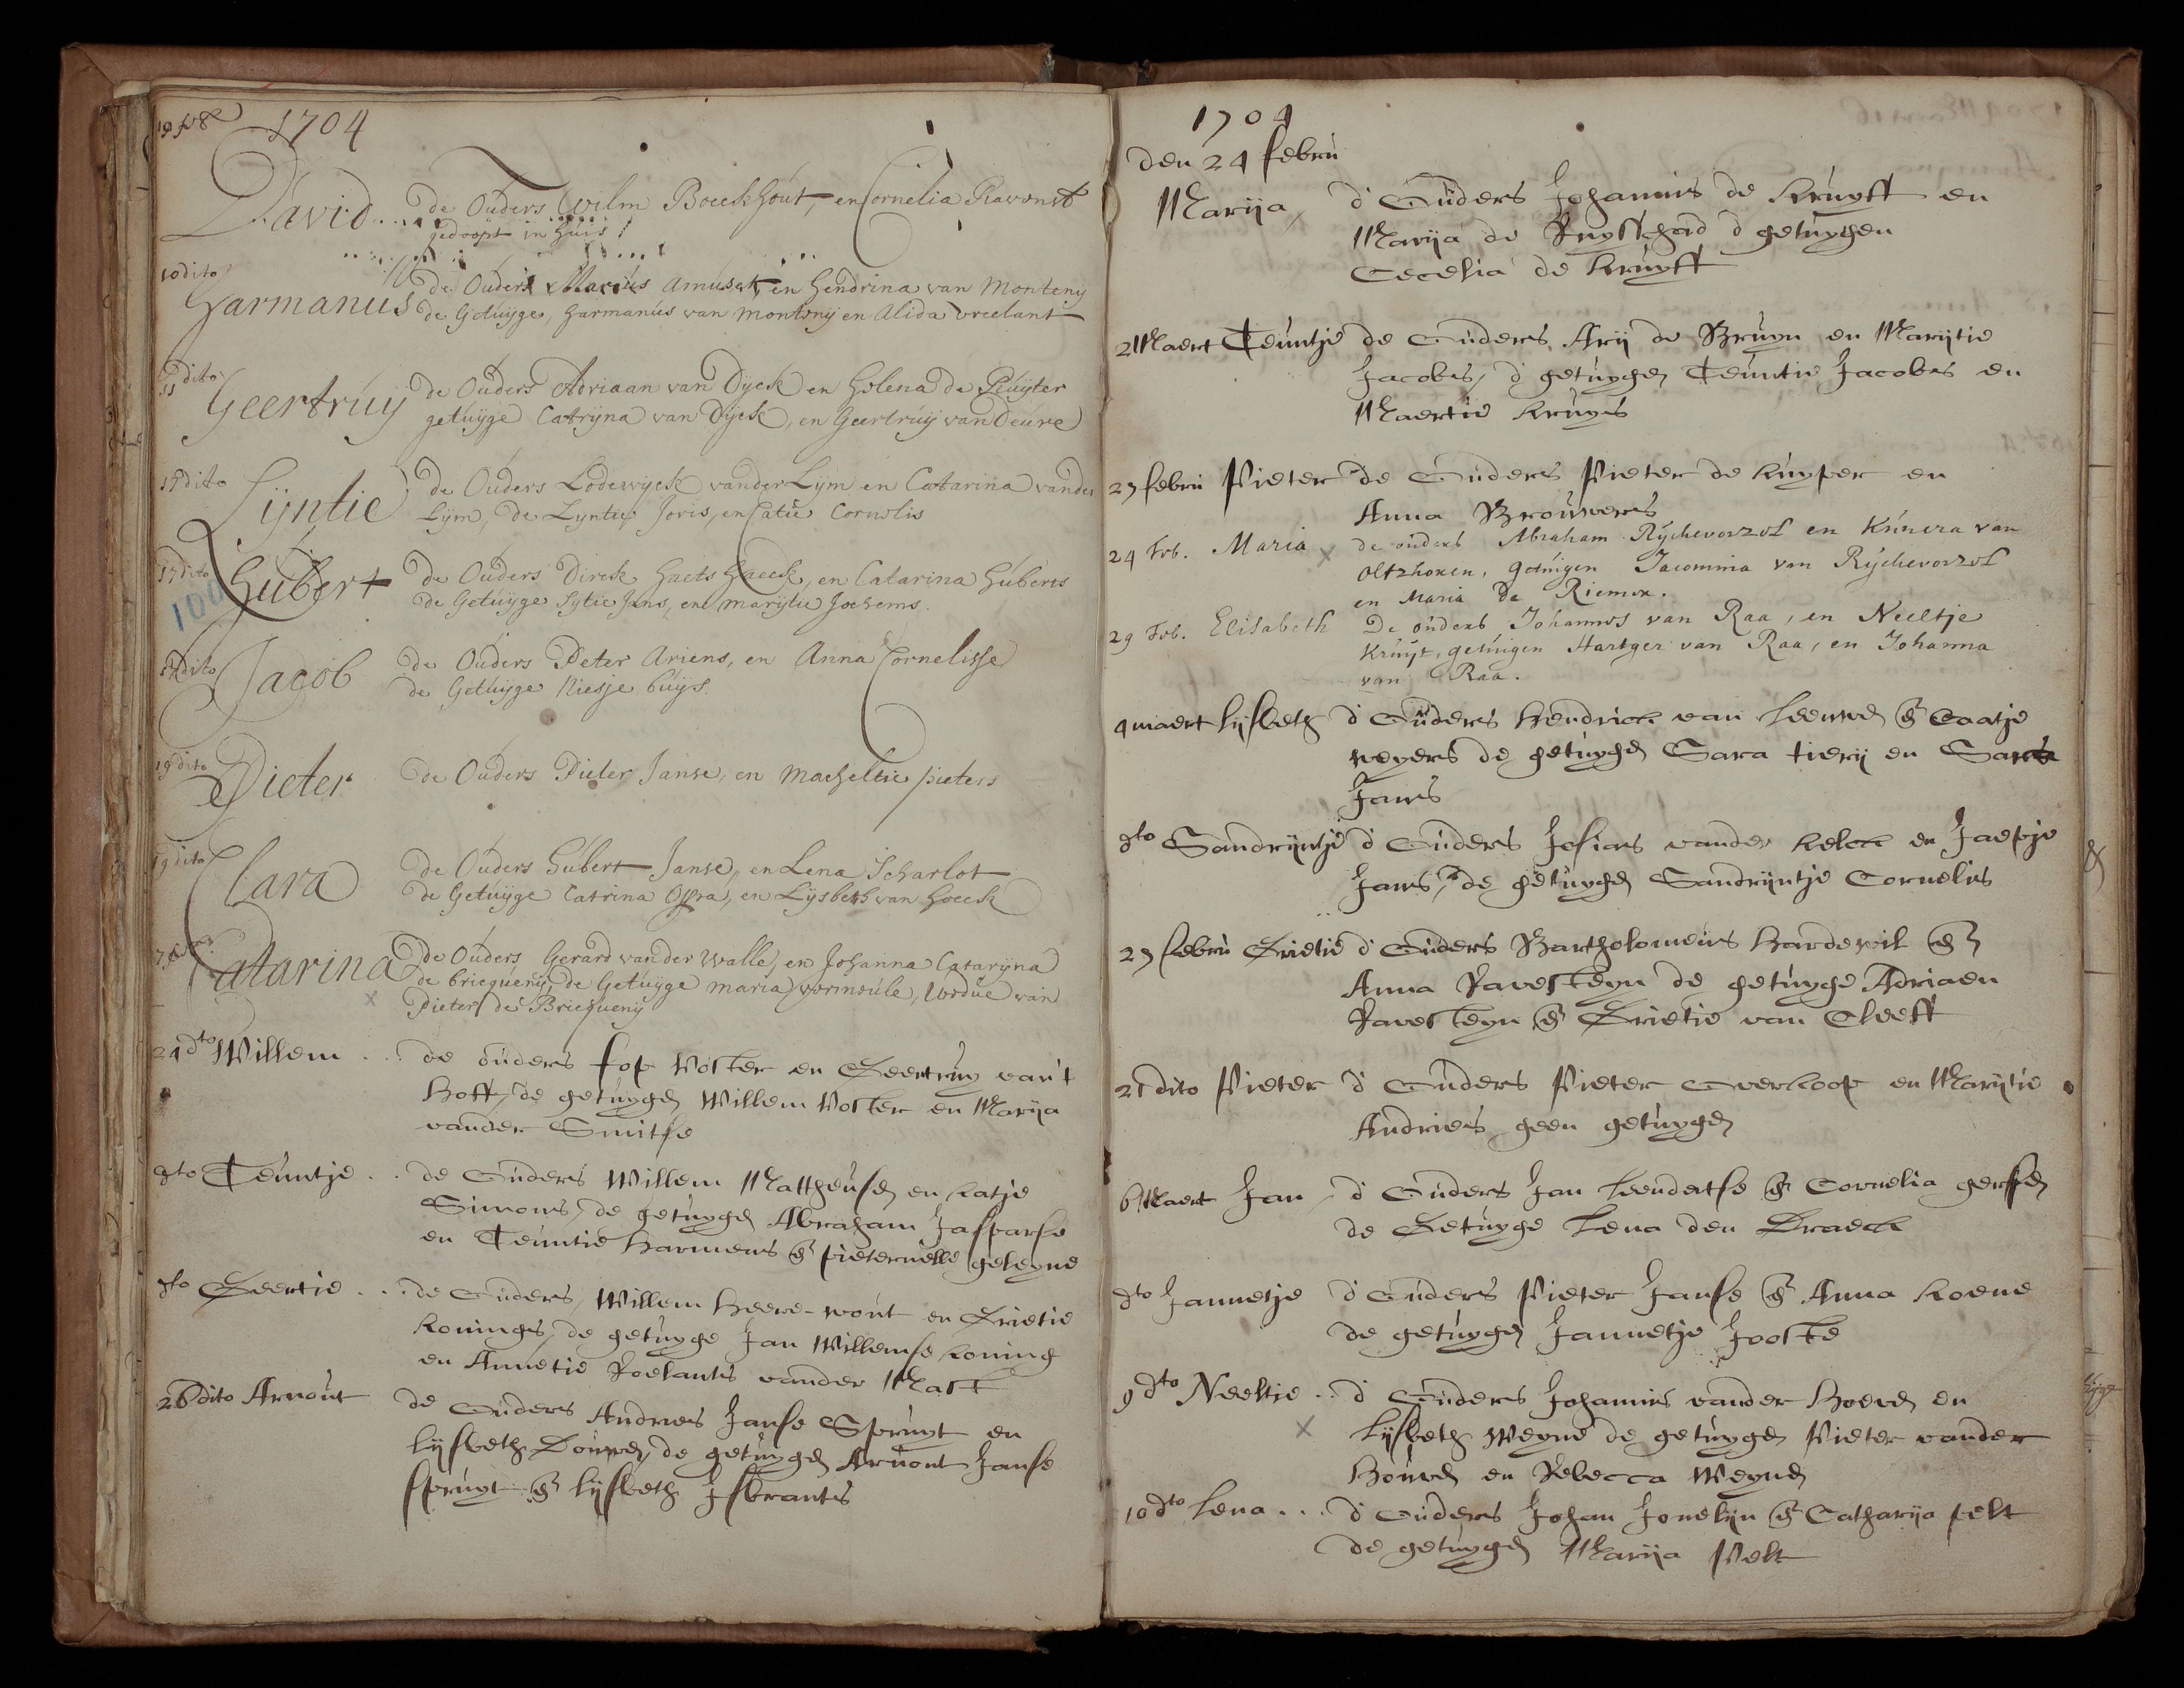 1704
David... de Ouders Wilm Boeckhout, en Cornelia Ravonst
gedoopt in huis
10 dito
Harmanus de Ouders Marius Amusat, en Hendrina van Monteny
de Getuijge, Harmanus van Montonij en Alida vreelant
11 dito
Geertruij de Ouders Adriaan van Dijck en Helena de Ruijter
getuijge Catrijna van Dijck, en Geertruij van Deure
dito
Lijntie de Ouders Lodewijck vander Lijm en Catarina vander
Lijm, de Lyntie Joris, en Catie Cornelis
17 dito
Hubert de Ouders Dirck Haets Haeck, en Catarina Huberts
100 de Getuijge Sytie Jans, en marijtie Jochems.
dito
Jacob de Ouders Peter Ariens, en Anna Cornelisse
de Getuijge Niesje buijs.
19 dito
Pieter de Ouders Pieter Janse, en Macheltie pieters
19 dito
Clara de Ouders Hubert Janse, en Lena Scharlot
de Getuijge Catrina, en Lijsbeth van Hoeck
Catarina de Ouders Gerard vander Walle, en Johanna Catarijna
de bricqueny, de Getuijge maria vormeule, wedue van
Pieter de Bricquenij
24 dto Willem .. de ouders fop Voster en Geertruy van't
Hoff, de getuygen Willem Voster en Marija
vander Smitse
dto Teuntje .. de Ouders Willem Mattheusen en Catje
Simons, de getuygen Abraham Jasparse
en Teuntie Harmens en pieternelle geleyne
dto Geertie ... de Ouders, Willem Heere-wout en Grietie
Konings, de getuyge Jan Willemse Koning
en Annetie Roelants vander Mast
26 dito Arnout de Ouders Andries Janse Spruyt en
lijsbeth Douwen, de getuygen Arnout Janse
spruyt en lijsbeth Isbrants
1704
den 24 febru
Marija, d' Ouders Johannis de Kruyff en
Marija de d getuygen
Cecelia de Kruyff
2 Maert Teuntje de Ouders Arij de Bruyn en Marijtie
Jacobs, d getuygen Teuntie Jacobs en
Maertie Kruys
27 febru Pieter de Ouders Pieter de Kuyper en
Anna Brouwers
24 Feb. Maria x de ouders Abraham Rijckevorzel en Kunera van
Oltzhoren, getuigen Jacomina van Rijckevorzel
en Maria de Riemer.
29 Feb. Elisabeth De ouders Johannes van Raa, en Neeltje
Kruijt, getuigen Hartger van Raa, en Johanna
van Raa.
4 maert lijsbeth d' Ouders Hendrick van Leeuwen en Caatje
weyers de getuygen Sara tierij en Sara
Jans
dto Sandrijntje d' Ouders Josias vander Kelck en Jaepje
Jans, de getuygen Sandrijntje Cornelis
27 febru Grietie d' Ouders Bartholomeus Hardewil en
Anna Ravesteyn de getuyge Adriaen
Ravesteyn en Grietie van Cleeff
dito Pieter d' Ouders Pieter Overloop en Marijtie
Andries geen getuygen
6 Maert Jan, d' Ouders Jan Leendertse en Cornelia gerssen
de Getuyge Lena den Draeck
dto Jannetje d' Ouders Pieter Janse en Anna Koene
de getuygen Jannetje Jooste
9 dto Neeltie .. d' Ouders Johannis vander Hoeven en
x Lijsbeth Weyne de getuygen Pieter vander
Houven en Rebecca Weynen
10 dto Lena ... d' Ouders Johan Jonelijn en Catharija pelt
de getuygen Marija Pelt